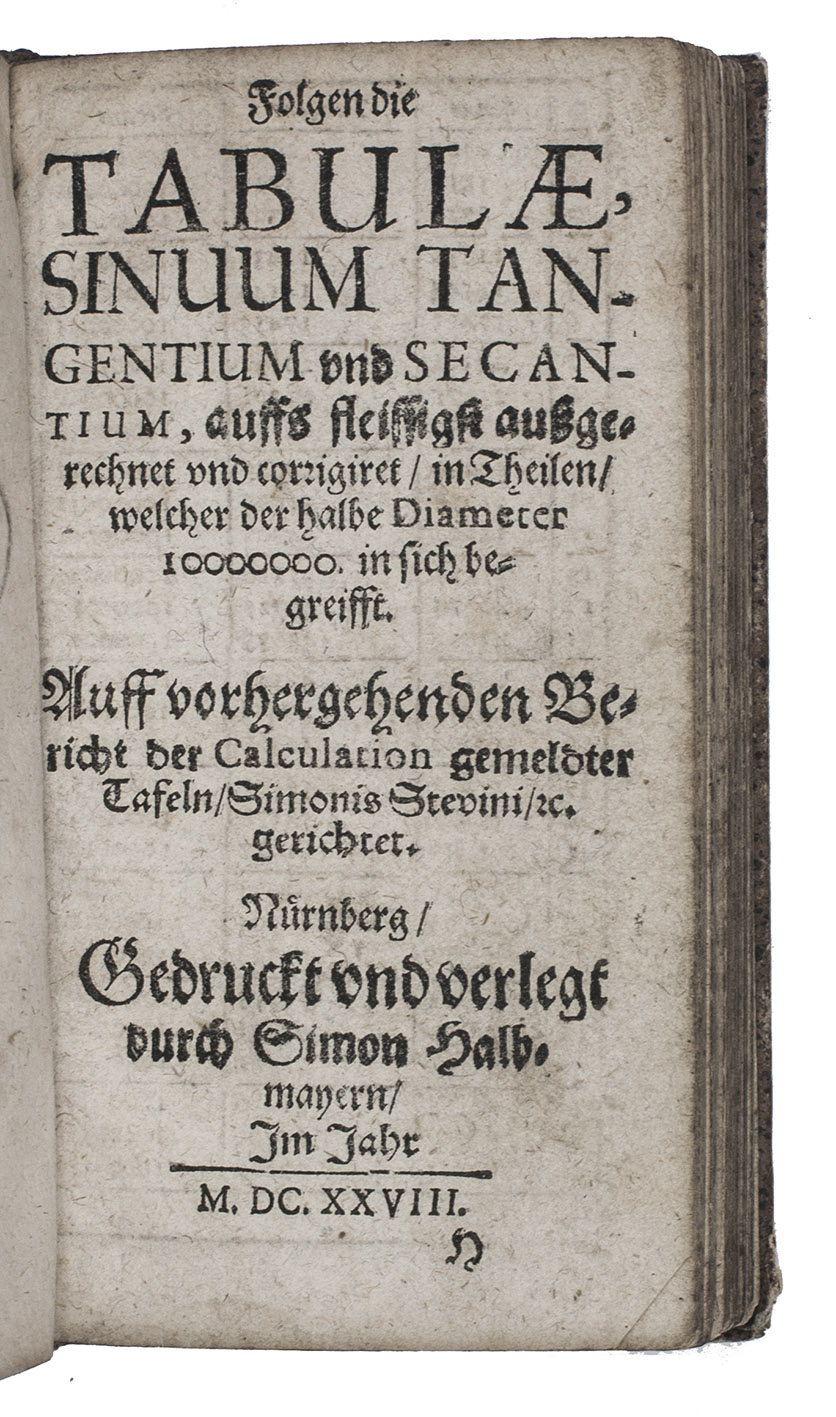 Folgen die
TABULÆ,
SINUUM TAN-
GENTIUM vnd SECAN-
TIUM, auffs fleissigst außge-
rechnet vnd corrigiret / in Theilen /
welcher der halbe Diameter
10000000. in sich be-
greifft.
Auff vorhergehenden Be-
richt der Calculation gemeldter
Tafeln / Simonis Stevini / ꝛc.
gerichtet.
Nürnberg /
Gedruckt vnd verlegt
durch Simon Halb-
mayern /
Im Jahr
M. DC. XXVIII.
H